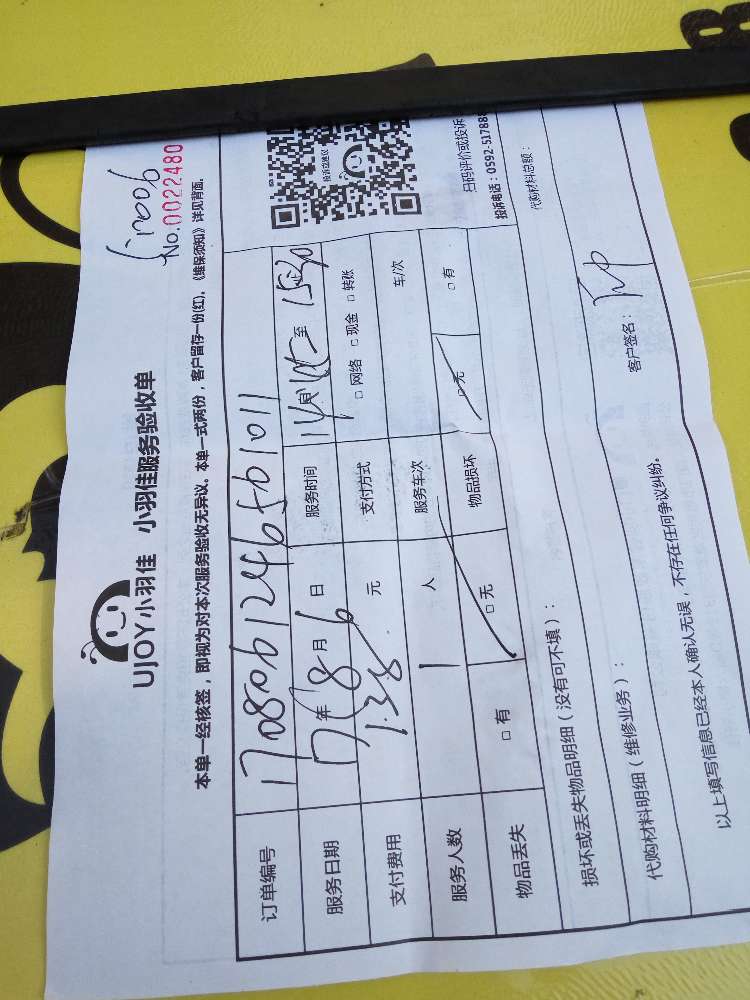 No.0022480
UJOY小羽佳 小羽佳服务验收单
本单一经核签，即视为对本次服务验收无异议。本单一式两份，客户留存一份(红)。《维保须知》详见背面。
订单编号 170806124656101011
服务日期 17年8月6日 服务时间 至 1530
支付费用 138元 支付方式 □ 网络 □ 现金 □ 转账
服务人数 1 人 服务车次 车/次
物品丢失 □ 有 □ 无 物品损坏 □ 无 □ 有
投诉或建议
扫码评价或投诉
投诉电话：0592-51788
损坏或丢失物品明细（没有可不填）：
代购材料明细（维修业务）： 代购材料总额：
以上填写信息已经本人确认无误，不存在任何争议纠纷。 客户签名：
8